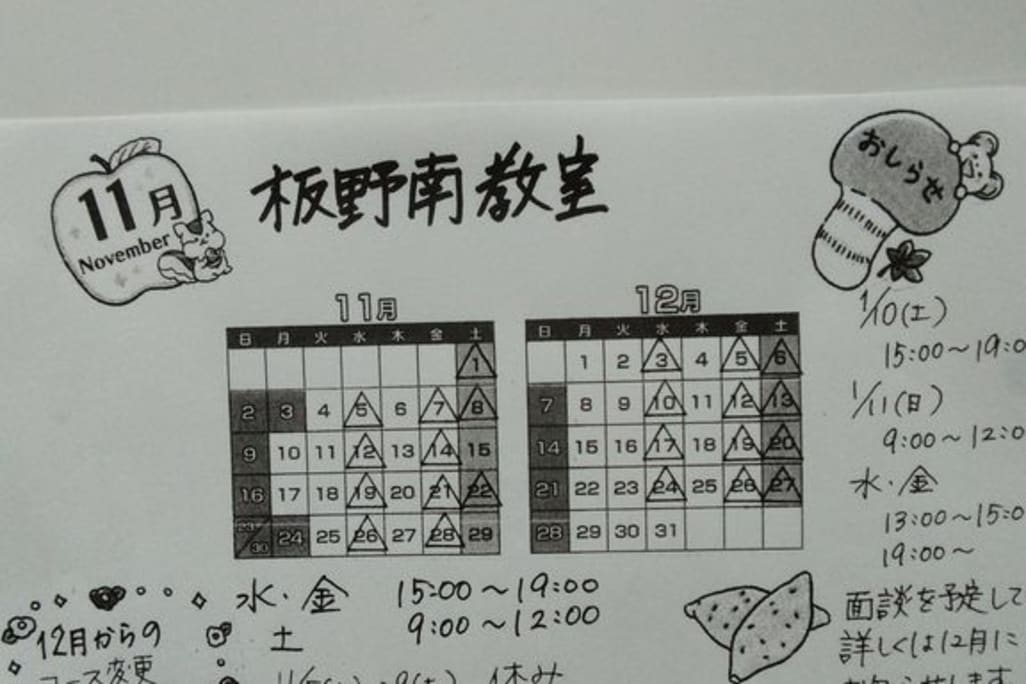 11月
November
板野南教室
おしらせ
11月
日 月 火 水 木 金 土
1
2 3 4 5 6 7 8
9 10 11 12 13 14 15
16 17 18 19 20 21 22
23/30 24 25 26 27 28 29
12月
日 月 火 水 木 金 土
1 2 3 4 5 6
7 8 9 10 11 12 13
14 15 16 17 18 19 20
21 22 23 24 25 26 27
28 29 30 31
水・金 15:00～19:00
土 9:00～12:00
休み
12月からの
コース変更
1/10(土)
15:00～19:0
1/11(日)
9:00～12:0
水・金
13:00～15:0
19:00～
面談を予定して
詳しくは12月に